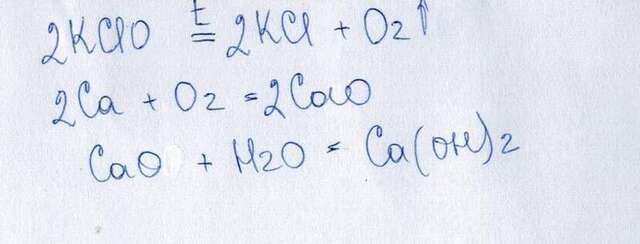 2KClO t= 2KCl + O2↑
2Ca + O2 = 2CaO
CaO + H2O = Ca(OH)2